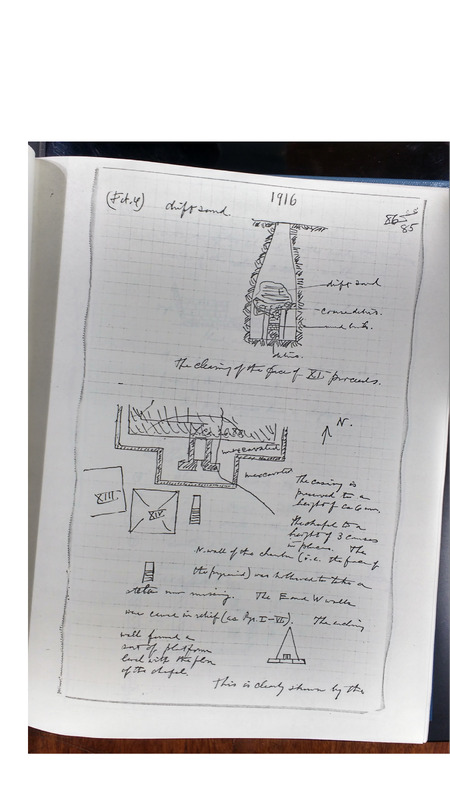 (Feb. 4)
drift sand.
1916
86
85
drift sand
coarse debris.
mud bricks.
debris.
The clearing of the face of XI proceeds.
N.
unexcavated
unexcavated
XIII.
XIV.
The casing is
preserved to a
height of ca 6 m,
the chapel to a
height of 3 courses
in places. The
N. wall of the chamber (i.e. the face of
the pyramid) was hollowed to take a
stela now missing. The E and W walls
were carved in relief (as Pyr. I-VII). The enclosing
wall formed a
sort of platform
level with the floor
of the chapel.
This is clearly shown by the